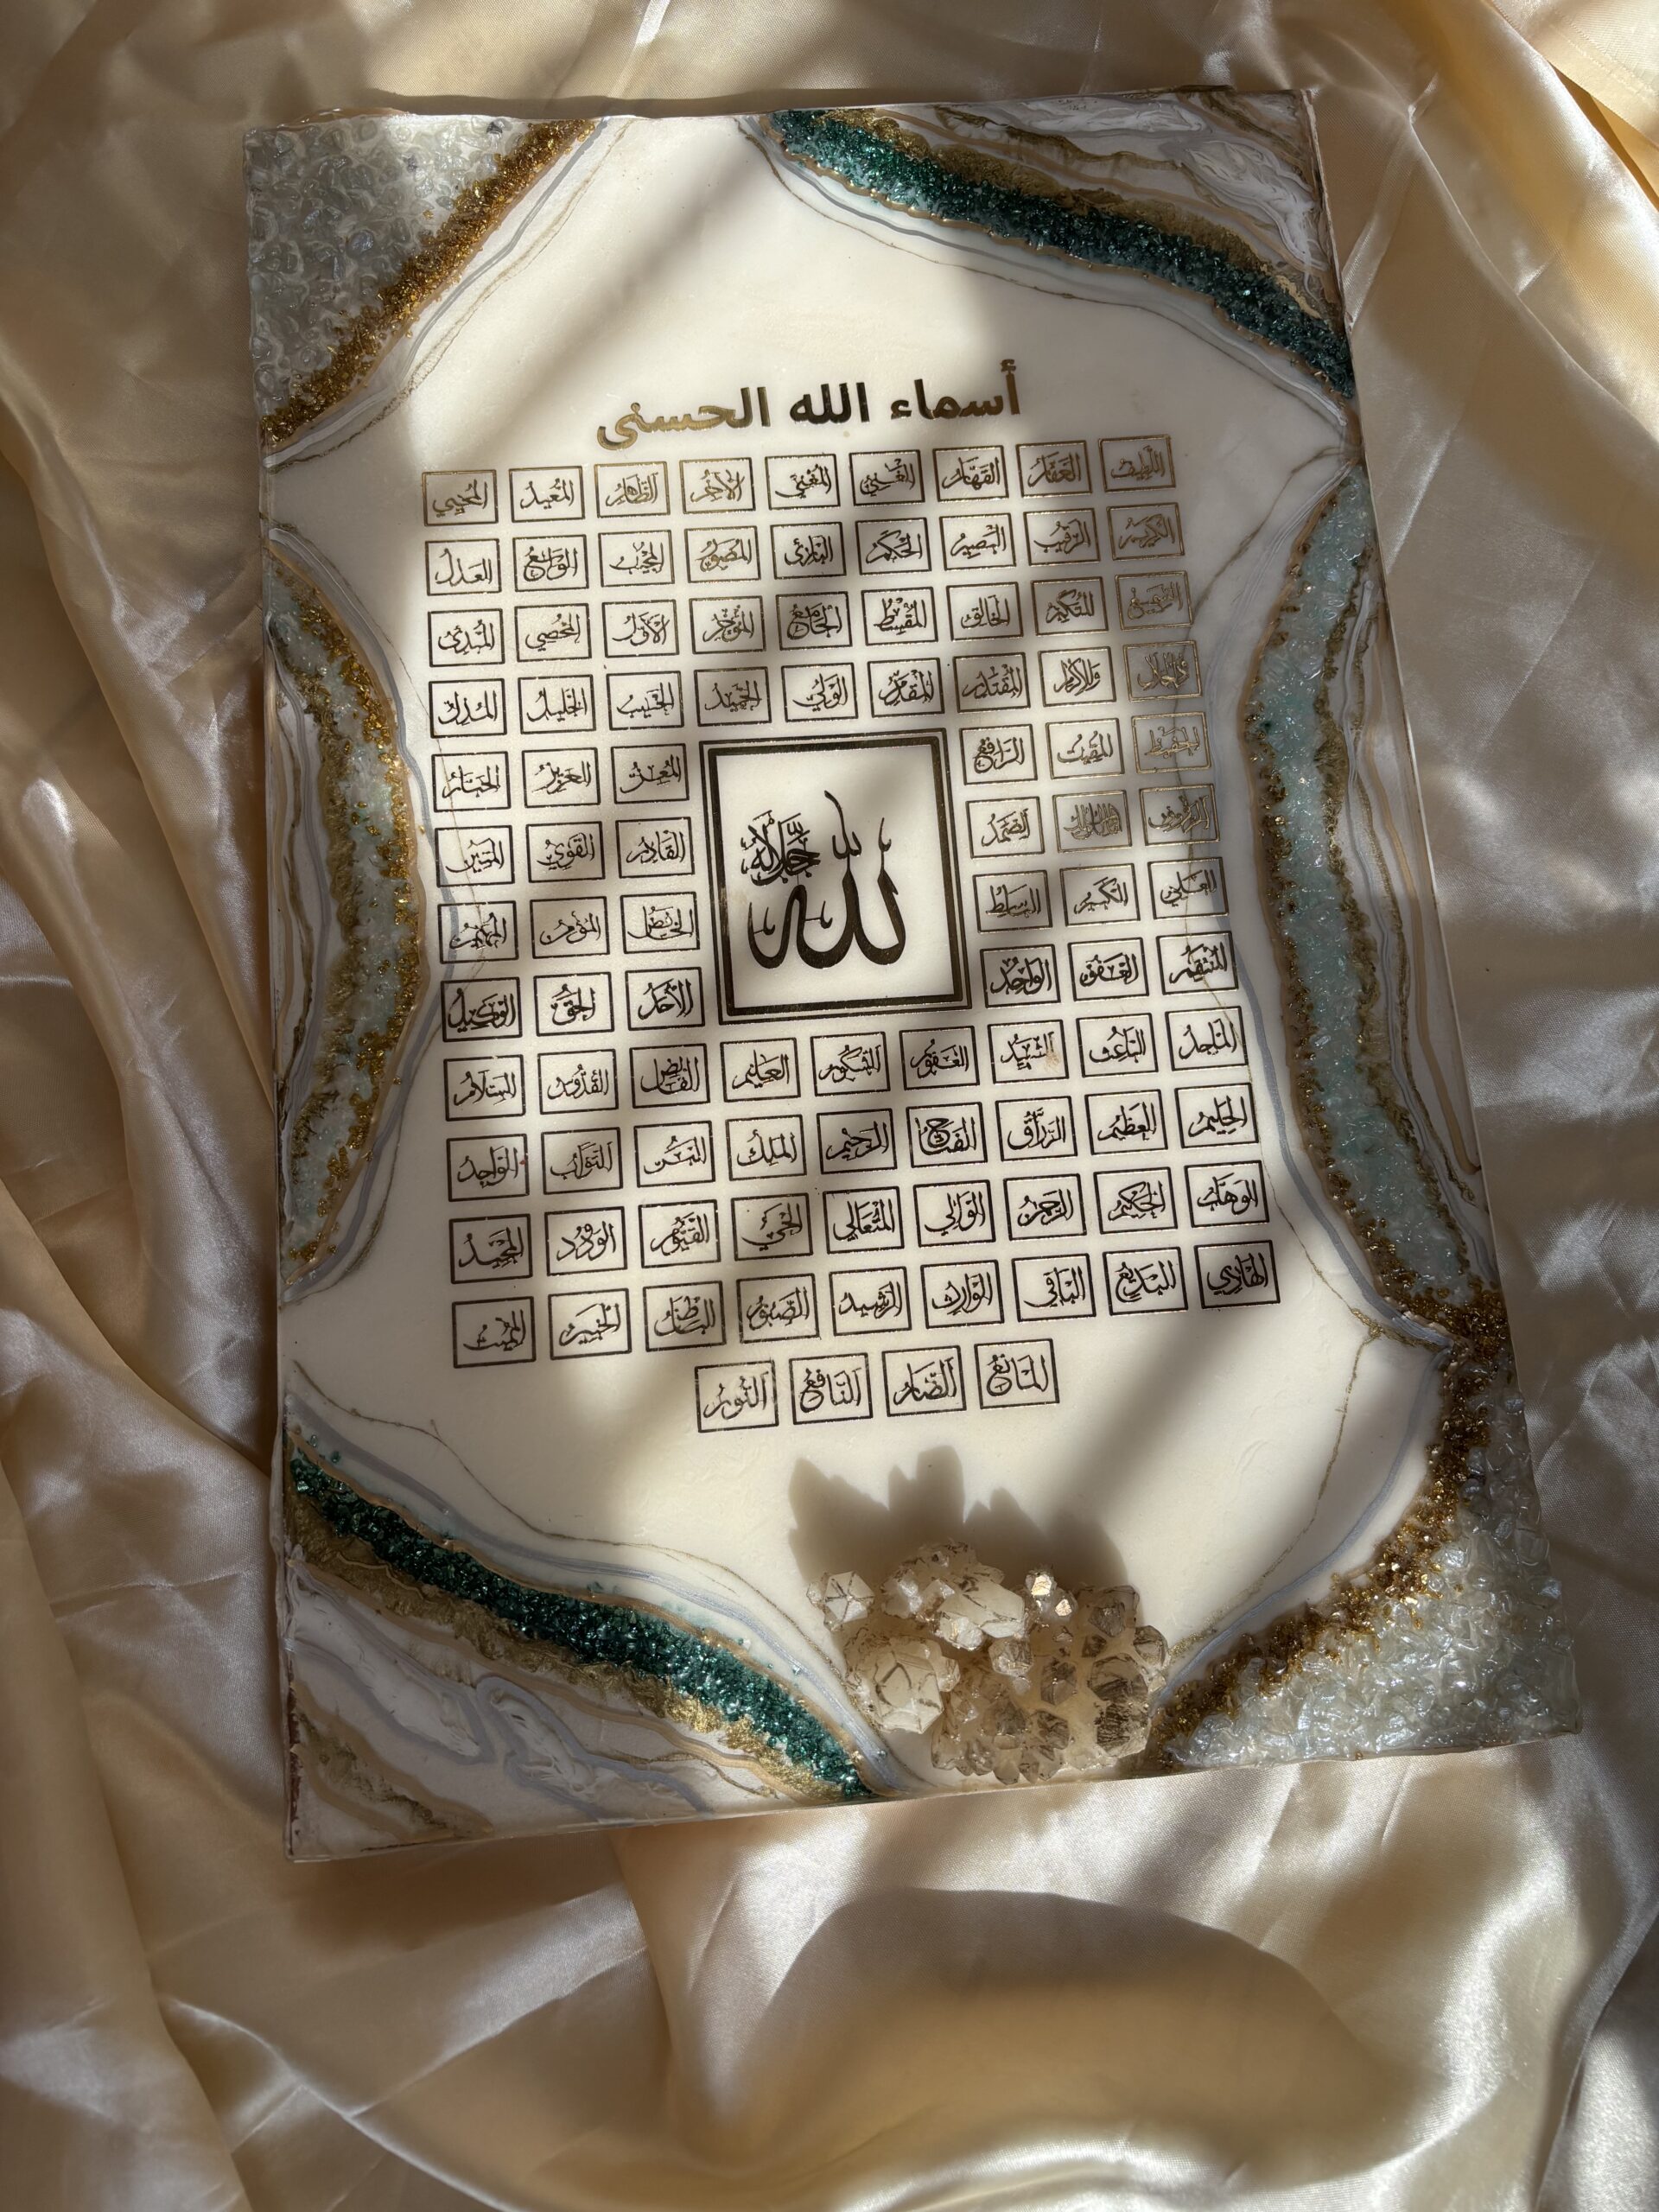 أسماء الله الحسنى
اللطيف الغفار القهار الغني المغني الآخر الظاهر المعيد المحيي
الكريم الرقيب البصير الحكم البارئ المصور المجيب الواسع العدل
السميع المتكبر الخالق المقسط الجامع المؤخر الأول المحصي المبدئ
ذو الجلال والإكرام المقتدر المقدم الولي الحميد الحسيب الجليل المذل
الحفيظ المقيت الرافع المعز العزيز الجبار
الرءوف مالك الملك الصمد القادر القوي المتين
الله جل جلاله
العلي الكبير الباسط الخافض المؤمن المهيمن
المنتقم العفو الواحد الأحد الحق الوكيل
الماجد الباعث الشهيد الغفور الشكور العليم القابض القدوس السلام
الحليم العظيم الرزاق الفتاح الرحيم الملك البر التواب الواجد
الوهاب الحكيم الرحمن الوالي المتعالي الحي القيوم الودود المجيد
الهادي البديع الباقي الوارث الرشيد الصبور الباطن الخبير المميت
المانع الضار النافع النور